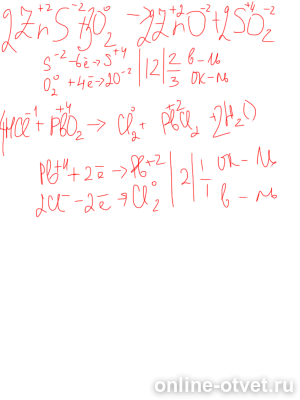 2Zn⁺²S⁻² + 3O₂⁰ → 2Zn⁺²O⁻² + 2S⁺⁴O₂⁻²
S⁻² - 6ē → S⁺⁴ | 12 | 2 в-ль
O₂⁰ + 4ē → 2O⁻² | 3 ок-ль
4HCl⁻¹ + Pb⁺⁴O₂ → Cl₂⁰ + Pb⁺²Cl₂ + 2H₂O
Pb⁺⁴ + 2ē → Pb⁺² | 2 | 1 ок-ль
2Cl⁻ - 2ē → Cl₂⁰ | 1 в-ль
online-otvet.ru